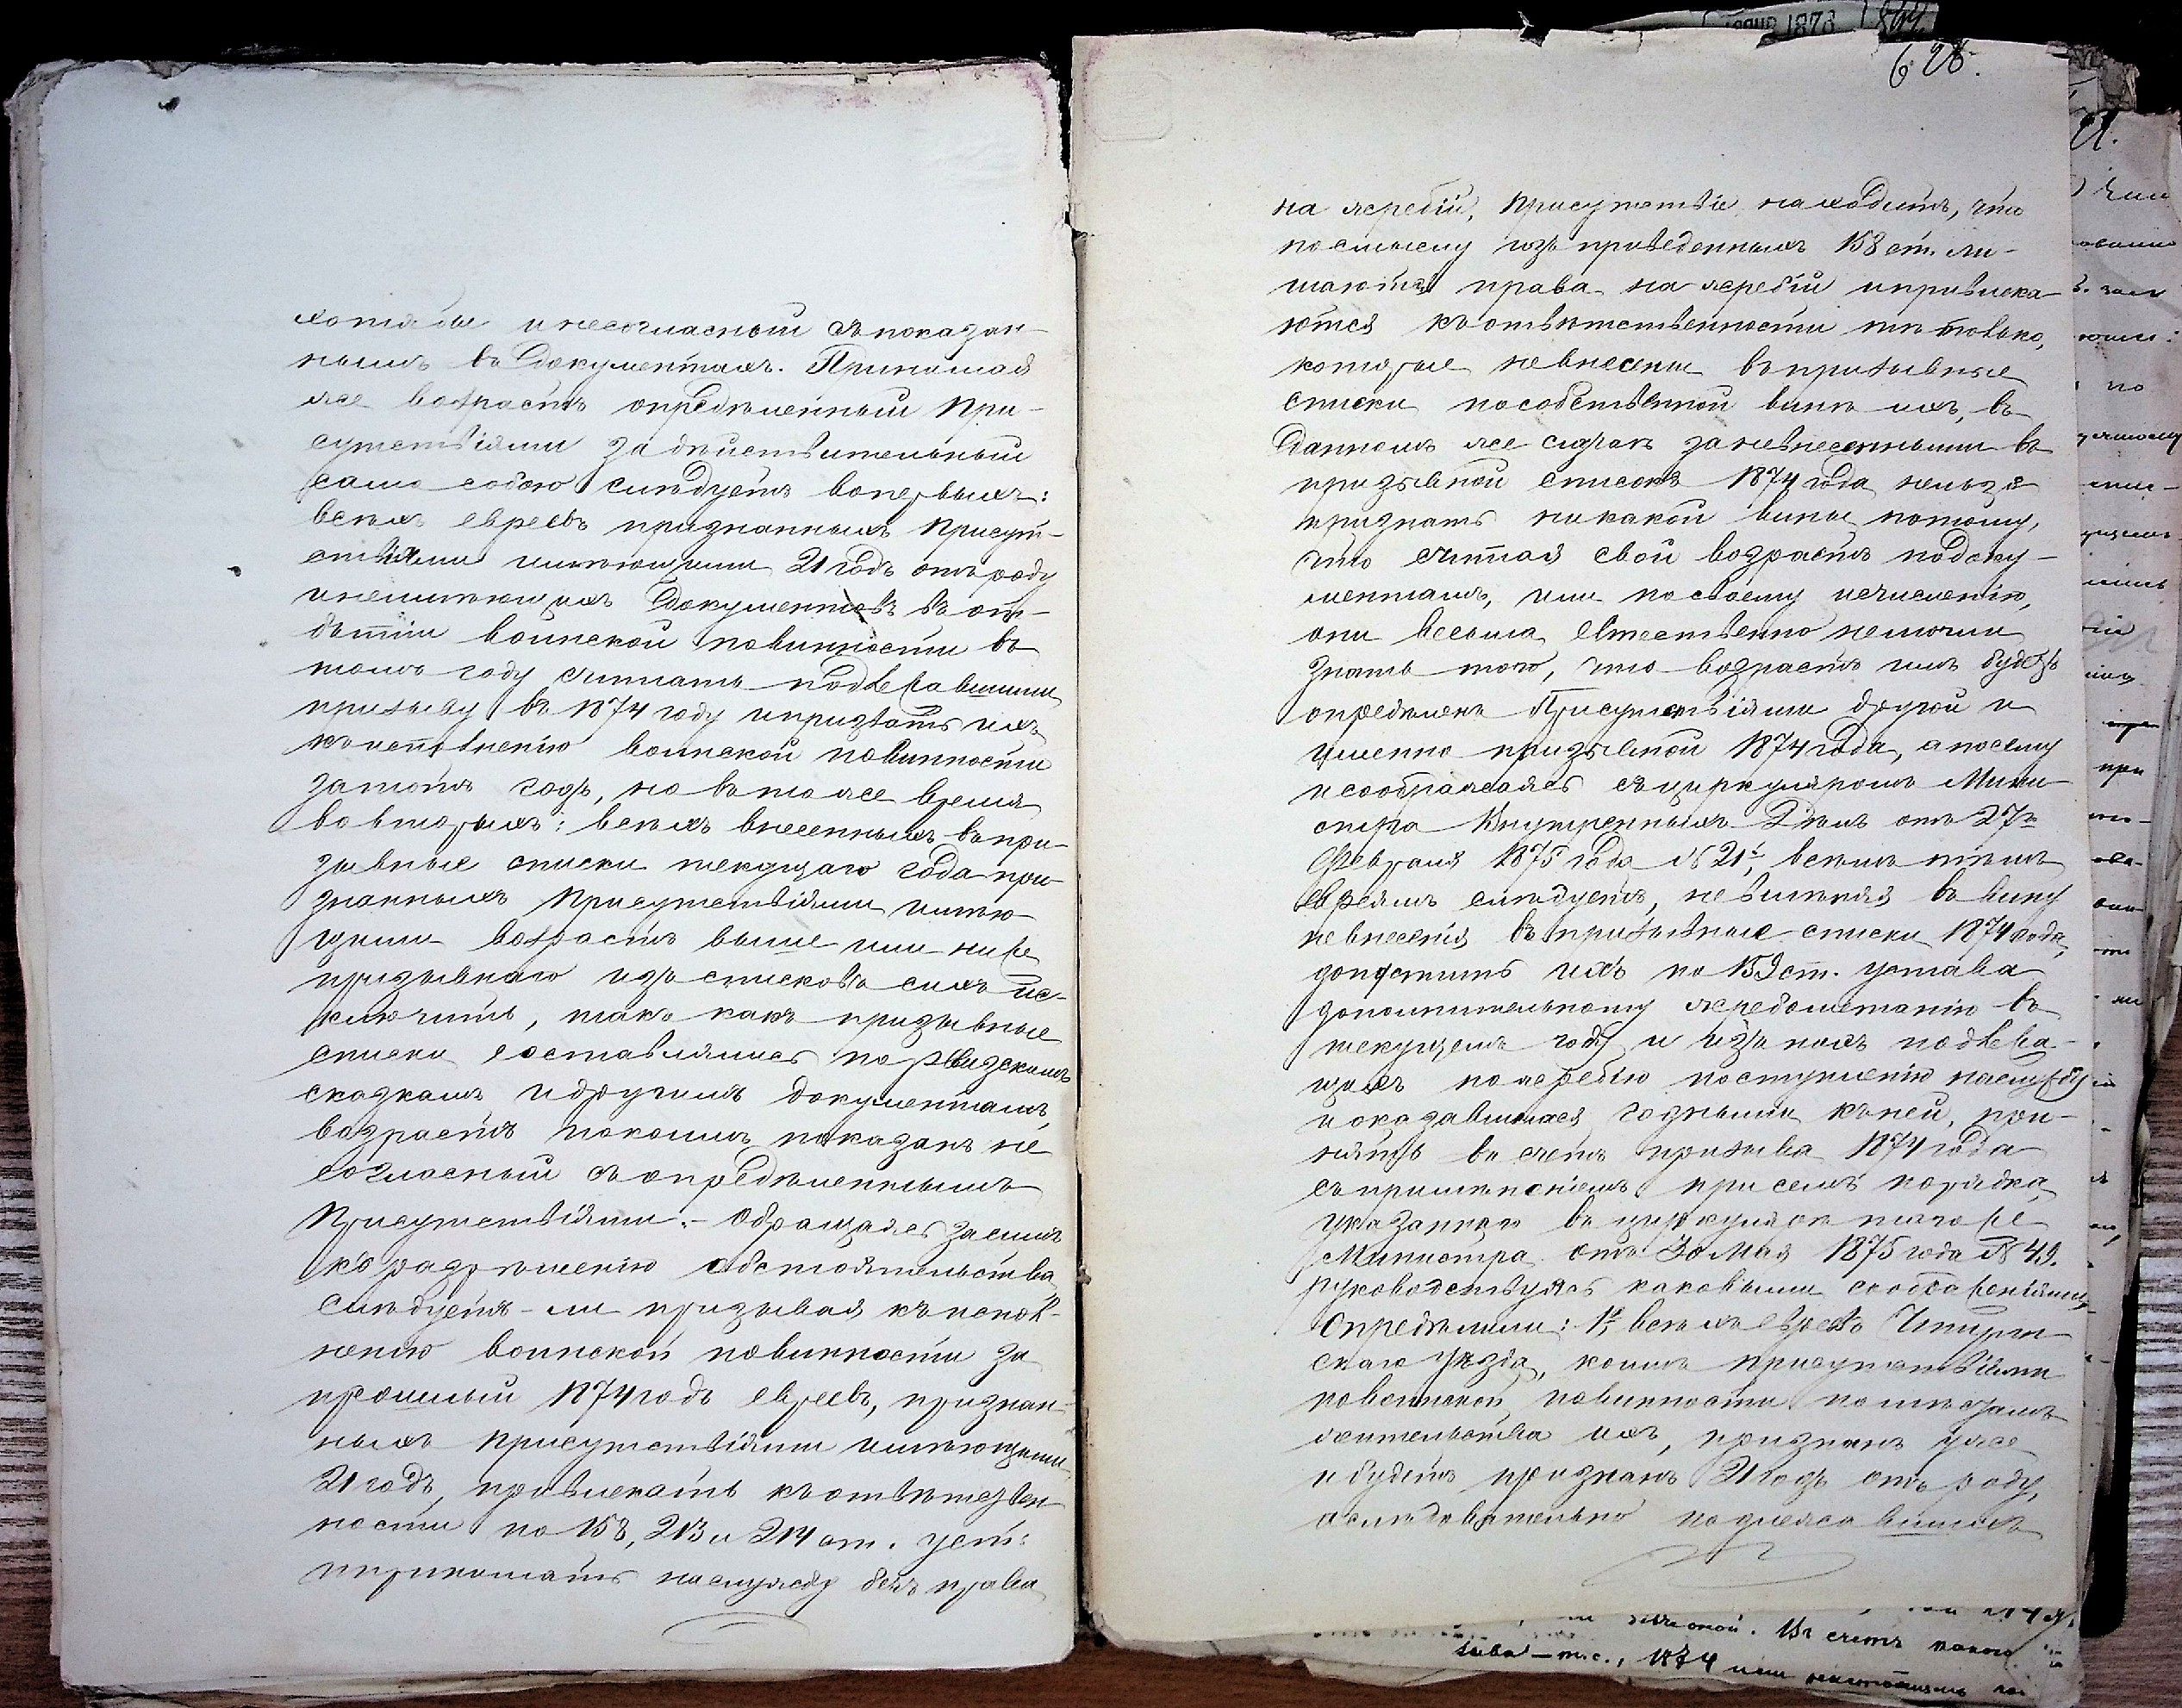 хотя бы и несогласный съ показан-
нымъ въ документахъ. Принимая
же возрастъ опредѣленный При-
сутствіями за дѣйствительный
само собою слѣдуетъ вопервыхъ:
всѣхъ евреевъ признанныхъ Присут-
ствіями имѣющими 21 годъ отъ роду
и неимѣющихъ документовъ въ от-
бытіи воинской повинности въ
томъ году считать подлежавшими
призыву въ 1874 году и призвать ихъ
къ исполненію воинской повинности
за тотъ годъ, но въ тоже время
во вторыхъ: всѣхъ внесенныхъ въ при-
зывные списки текущаго года при-
знанныхъ Присутствіями имѣю-
щими возрастъ выше или ниже
призывнаго изъ списковъ сихъ ис-
ключить, такъ какъ призывные
списки составлялись по ревизскимъ
сказкамъ и другимъ документамъ,
возрастъ по коимъ показанъ не
согласный съ опредѣленнымъ
Присутствіями. - Обращаясь за симъ
къ разрѣшенію обстоятельства,
слѣдуетъ-ли призывая къ испол-
ненію воинской повинности за
прошлый 1874 годъ евреевъ, признан-
ныхъ Присутствіями имѣющими
21 годъ, привлекать къ отвѣтствен-
ности по 158, 213 и 214 ст. уст:
и принимать на службу безъ права
628.
на жребій, Присутствіе находитъ, что
по смыслу изъ приведенныхъ 158 ст. ли-
шаются права на жребій и привлека-
ются къ отвѣтственности тѣ только,
которые невнесены въ призывные
списки по собственной винѣ ихъ, въ
данномъ же случаѣ за невнесенными въ
призывной списокъ 1874 года нельзя
признать никакой вины потому,
что считая свой возрастъ по доку-
ментамъ, или по своему исчисленію,
они весьма естественно немогли
знать того, что возрастъ имъ будетъ
опредѣленъ Присутствіями другой и
именно призывной 1874 года, а посему
и сообразаясь съ циркуляромъ Мини-
стра Внутреннихъ Дѣлъ отъ 27го
Февраля 1875 года № 21, всѣмъ тѣмъ
евреямъ слѣдуетъ, не вмѣняя въ вину
невнесенія въ призывные списки 1874 года,
допустить ихъ по 152 ст. устава
дополнительному жребометанію въ
текущемъ году и изъ нихъ подлежа-
щихъ по жребію поступленію на службу
и оказавшихся годными къ ней, при-
нять въ счетъ призыва 1874 года
съ примѣненіемъ при семъ порядка,
указаннаго въ циркулярѣ того же
Министра отъ 30 Мая 1875 года № 49.
руководствуясь каковыми соображеніями,
Опредѣлили: 1е, всѣхъ евреевъ
скаго уѣзда, коимъ Присутствіями
по воинской повинности по мѣстамъ
жительства ихъ, признанъ уже
и будетъ признанъ 21 годъ отъ роду,
а слѣдовательно подлежавшихъ